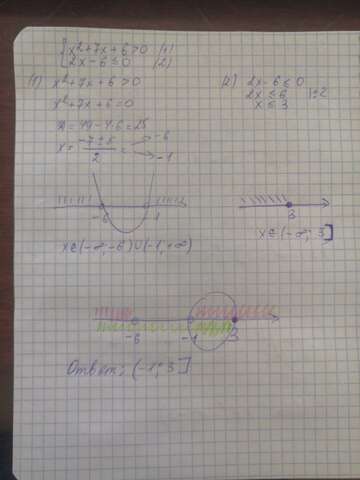 { x²+7x+6>0 (1)
2x-6≤0 (2)
(1) x²+7x+6>0
x²+7x+6=0
D=49-4·6=25
x = (-7±5)/2 = → -6
→ -1
-6 -1
x∈(-∞;-6)∪(-1;+∞)
(2) 2x-6≤0
2x≤6 |:2
x≤3
3
x∈(-∞;3]
-6 -1 3
Ответ: (-1;3]